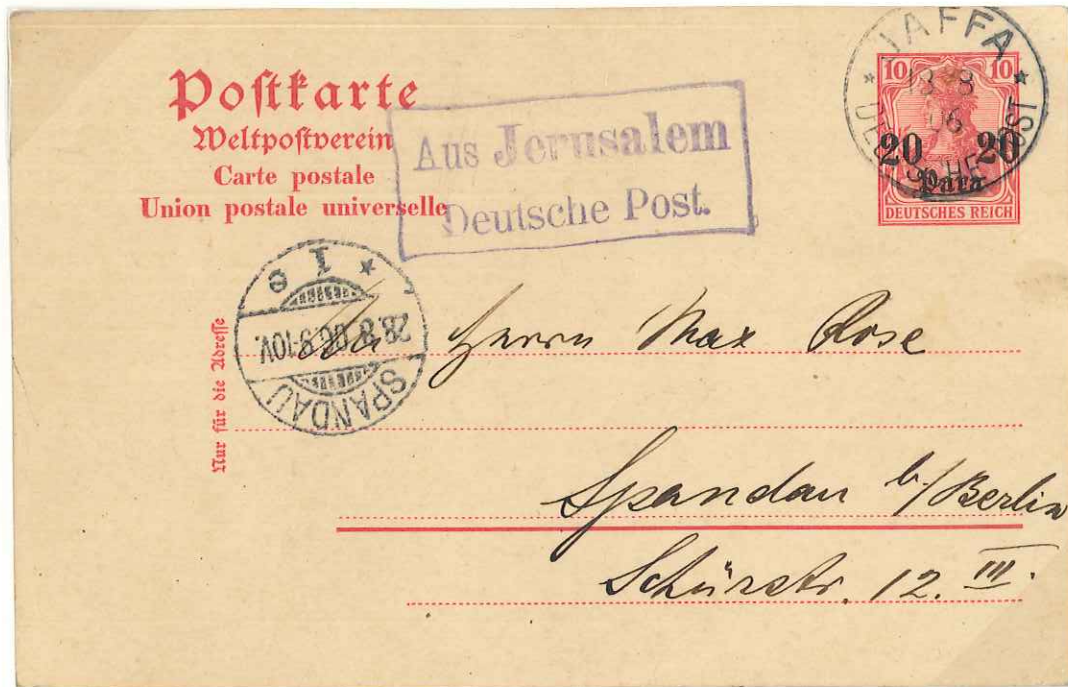 Postkarte
Weltpostverein
Carte postale
Union postale universelle
Aus Jerusalem
Deutsche Post.
JAFFA
18 8
06
DEUTSCHE POST
10 10
20 20
Para
DEUTSCHES REICH
1 e
28.8.06.9-10V.
SPANDAU
Nur für die Adresse
Herrn Max Rose
Spandau b/Berlin
Schürstr. 12. III.